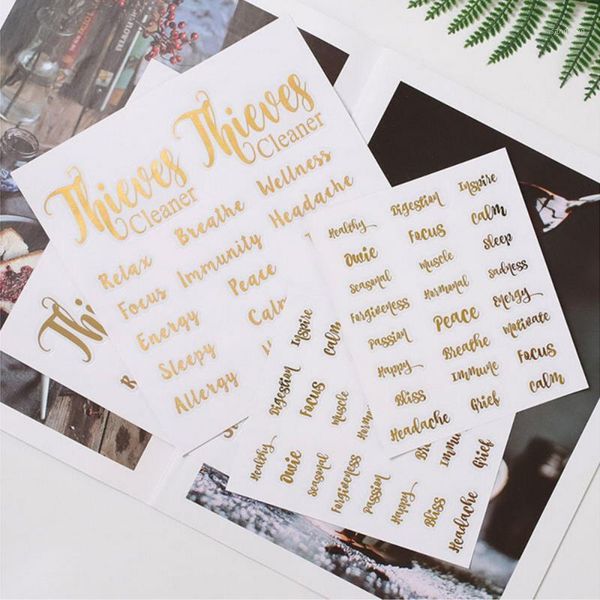 Thieves Thieves
Cleaner Cleaner
Relax Breathe Wellness
Focus Immunity Headache
Energy Peace
Sleepy Calm
Allergy
Thi
Healthy Digestion Inspire
Owie Focus Calm
Seasonal Muscle Sleep
Forgiveness Hormonal Sadness
Passion Peace Energy
Happy Breathe Motivate
Bliss Immune Focus
Headache Grief Calm
Digestion Focus Inspire
Calm
Healthy Owie Muscle
Seasonal
Forgiveness
Passion
Happy
Bliss Immune
Headache Grief